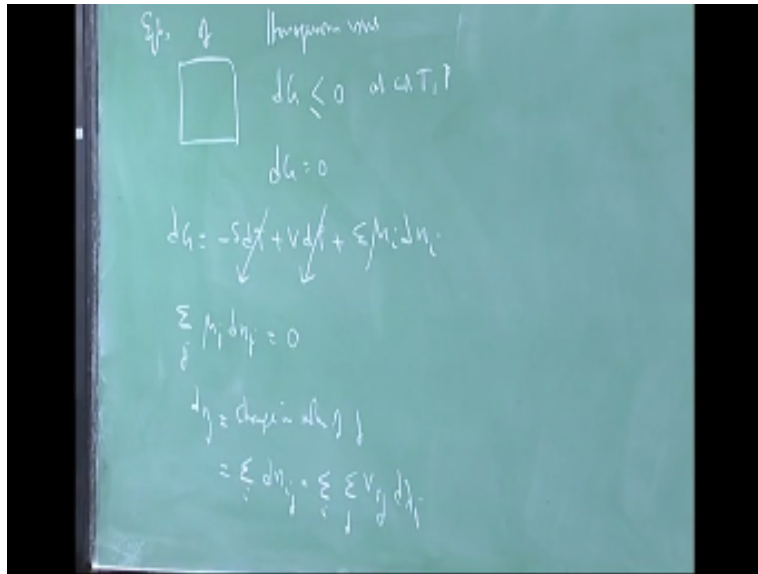 Eqb. of Homogeneous
dG ≤ 0 at cst T, P
dG = 0
dG = -SdT + VdP + Σ μi dni
Σ j μj dnj = 0
dnj = change in of j
= Σ i dnij = Σ i Σ j νij dλi